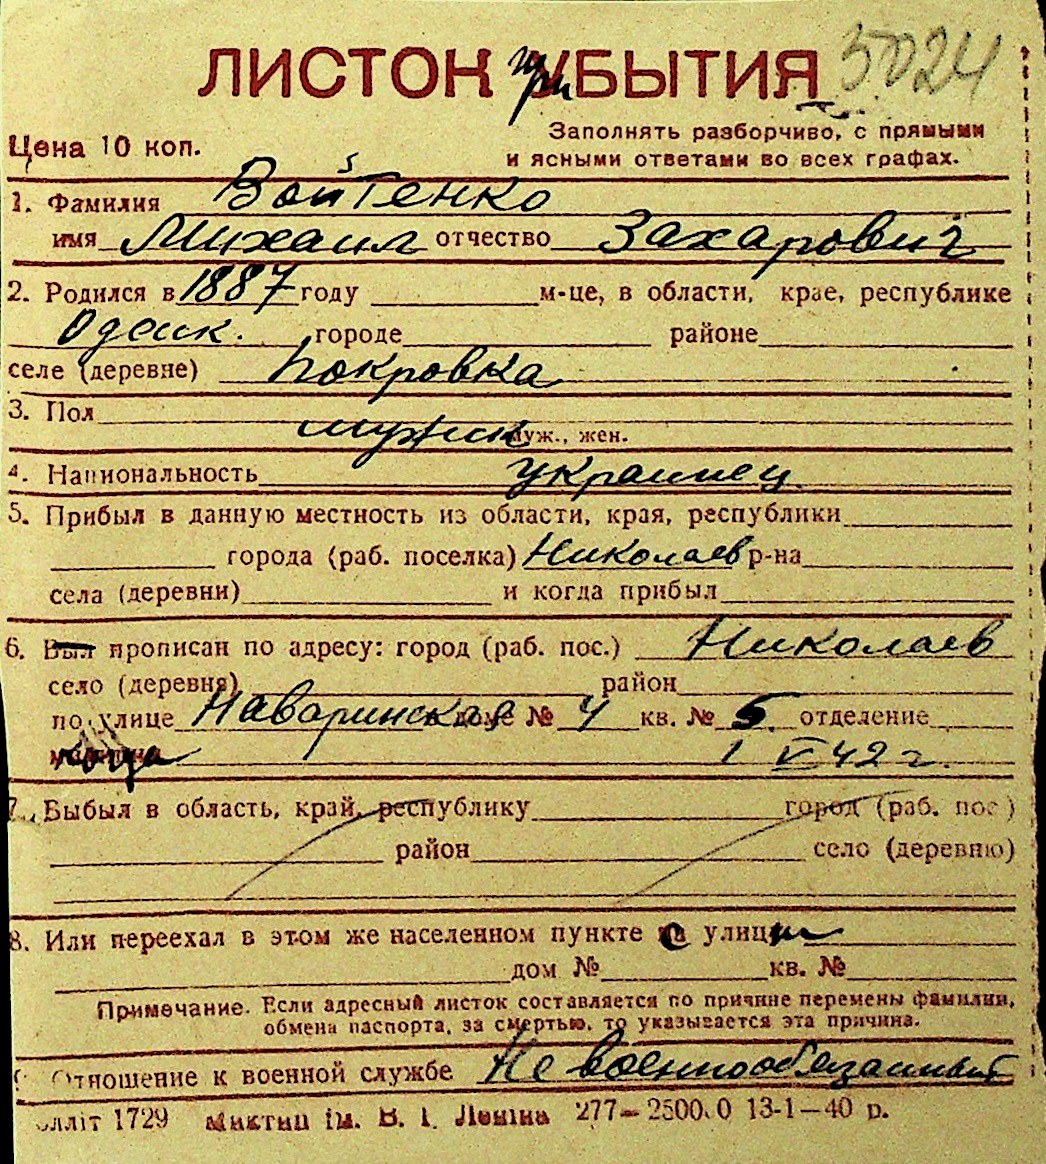 ЛИСТОК при БЫТИЯ 5024
Цена 10 коп.
Заполнять разборчиво, с прямыми
и ясными ответами во всех графах.
1. Фамилия Войтенко
имя Михаил отчество Захарович
2. Родился в 1887 году м-це, в области, крае, республике
Одеск. городе районе
селе (деревне) Покровка
3. Пол мужск муж., жен.
4. Национальность украинец
5. Прибыл в данную местность из области, края, республики
города (раб. поселка) Николаев р-на
села (деревни) и когда прибыл
6. Был прописан по адресу: город (раб. пос.) Николаев
село (деревня) район
по улице Наваринская доме № 4 кв. № 5 отделение
когда 1 VI 42 г.
7. Выбыл в область, край, республику город (раб. пос.)
район село (деревню)
8. Или переехал в этом же населенном пункте с улицы
дом № кв. №
Примечание. Если адресный листок составляется по причине перемены фамилии,
обмена паспорта, за смертью, то указывается эта причина.
Отношение к военной службе Не военнообязанный
1729 ім. В. І. Леніна 277—2500.0 13-1—40 р.